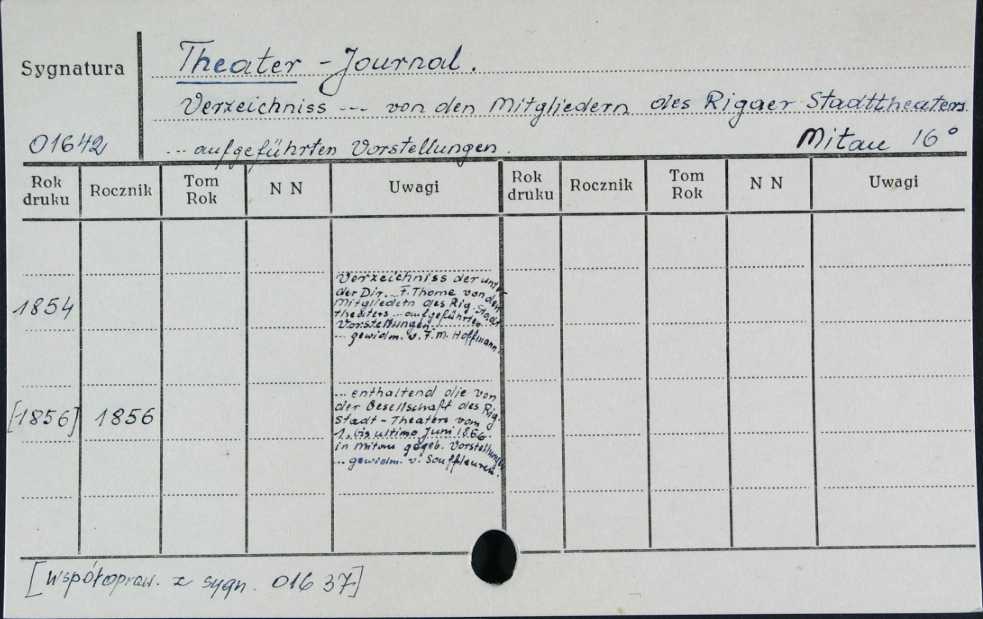 Theater - Journal.
Sygnatura
Verzeichniss --- von den Mitgliedern des Rigaer Stadttheaters
01642 ... aufgeführten Vorstellungen. Mitau 16°
Rok druku Rocznik Tom Rok N N Uwagi Rok druku Rocznik Tom Rok N N Uwagi
1854
Verzeichniss der unter
der Dir. .. F. Thome von den
Mitgliedern des Rig. Stadt
theaters .. aufgeführten
Vorstellungen.
... gewidm. v. F. M. Hoffmann
[1856] 1856
... enthaltend die von
der Gesellschaft des Rig.
Stadt - Theaters vom
1. bis ultimo Juni 1856
in Mitau gegeb. Vorstellungen
... gewidm. v. Souffleuren.
[Współopraw. z sygn. 01637]